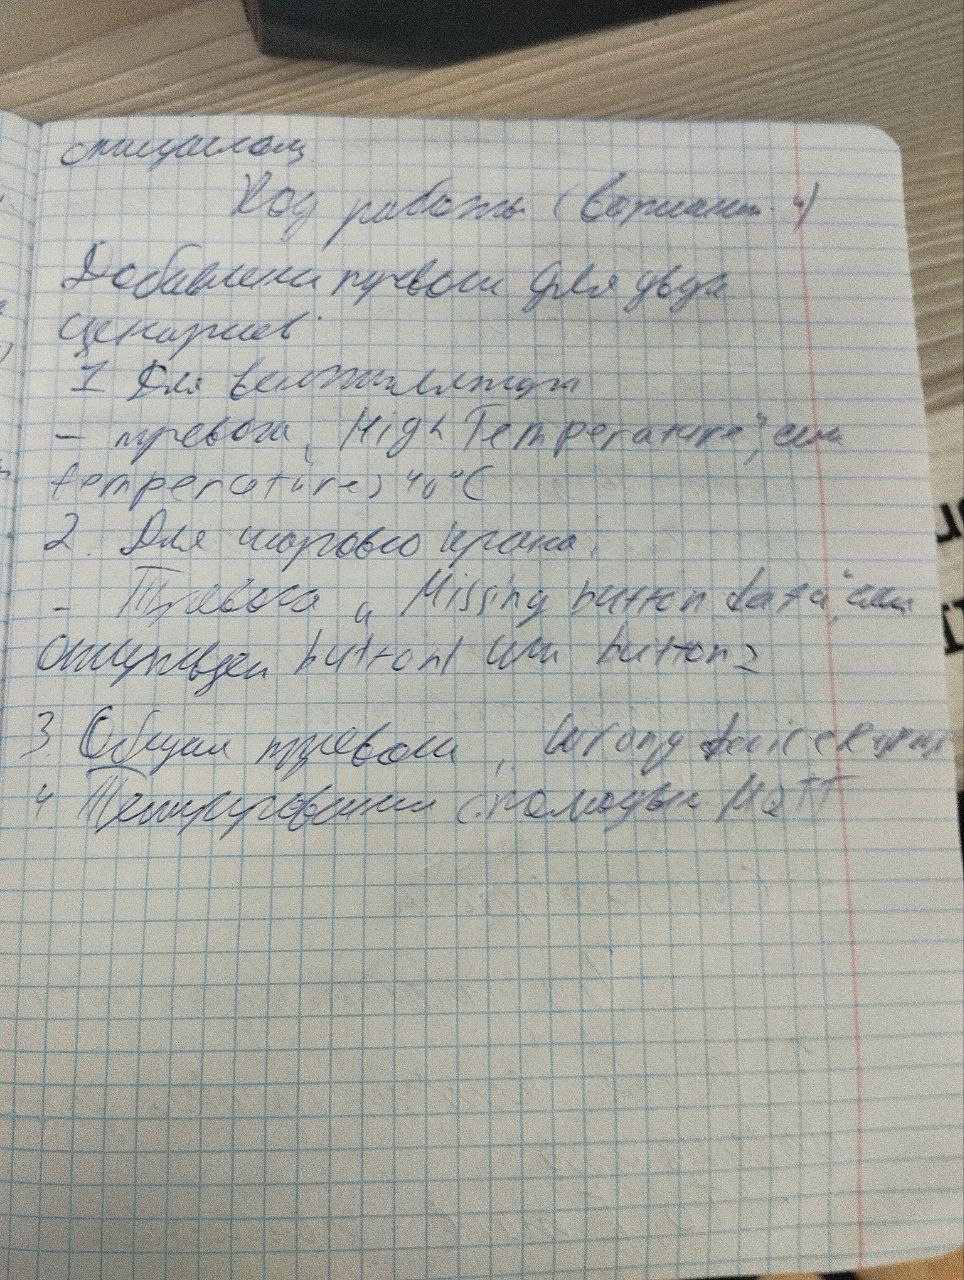 Ход работы (Вариант 4)
Добавлены тревоги для двух
сценариев
1 Для вентилятора
- тревога "High Temperature", если
temperature > 40°C
2. Для шарового крана:
- Тревога "Missing button data", если
отсутствует button1 или button2
3. Общая тревога "Wrong device
4. Тестирование с помощью MQTT